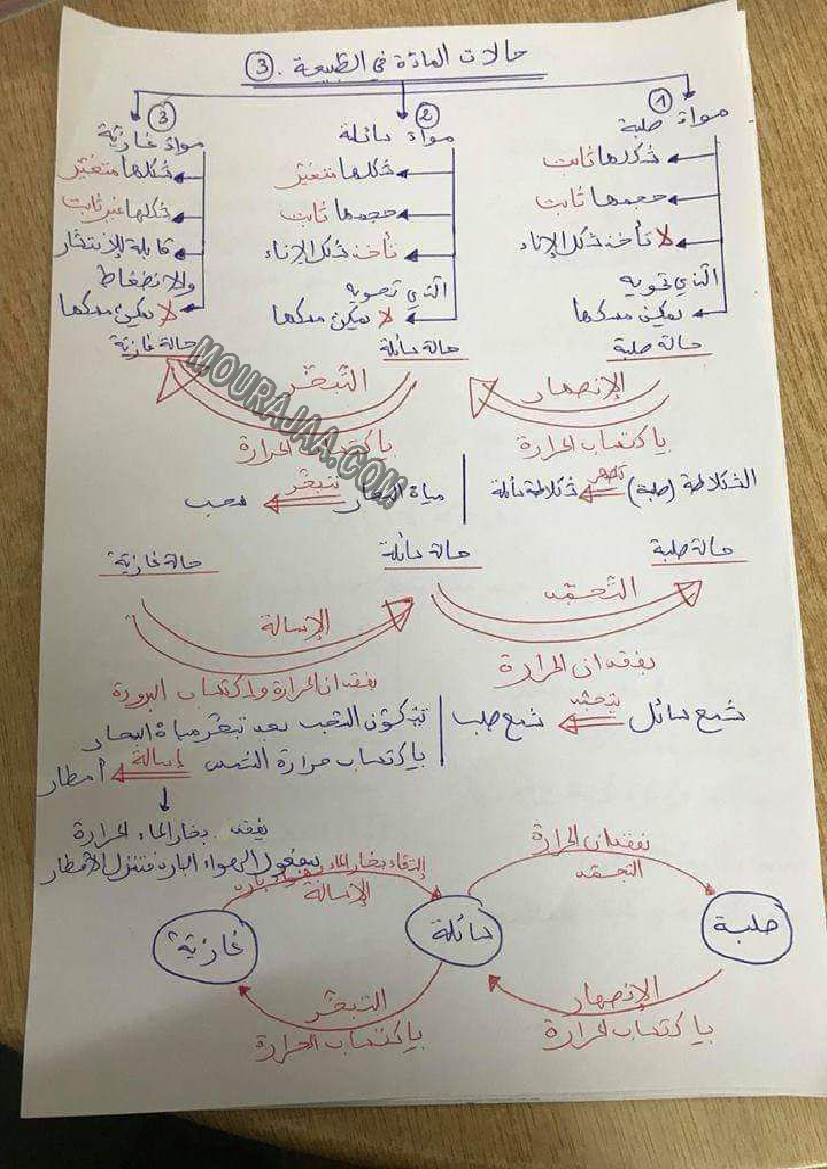 حالات المادة في الطبيعة. ③
①
مواد صلبة
شكلها ثابت
حجمها ثابت
لا تأخذ شكل الإناء
الذي تحويه
يمكن مسكها
②
مواد سائلة
شكلها متغيّر
حجمها ثابت
تأخذ شكل الإناء
الذي تحويه
لا يمكن مسكها
③
مواد غازيّة
شكلها متغيّر
شكلها غير ثابت
قابلة للإنتشار
والإنضغاط
لا يمكن مسكها
حالة صلبة
حالة سائلة
حالة غازيّة
الإنصهار
بإكتساب الحرارة
التّبخّر
بإكتساب الحرارة
MOURAJAA.COM
الشكلاطة (صلبة) تنصهر شكلاطة سائلة
مياه البحار تتبخّر سحب
حالة صلبة
حالة سائلة
حالة غازيّة
التّجمّد
بفقدان الحرارة
الإسالة
بفقدان الحرارة وإكتساب البرودة
شمع سائل يتجمّد شمع صلب
تتكوّن السّحب بعد تبخّر مياه البحار
بإكتساب حرارة الشمس إسالة أمطار
يفقد بخار الماء الحرارة
بمفعول الهواء البارد فتنزل الأمطار
بفقدان الحرارة
التجمّد
إلتقاء بخار الماء بهواء بارد
الإسالة
صلبة
سائلة
غازيّة
الإنصهار
بإكتساب الحرارة
التبخّر
بإكتساب الحرارة